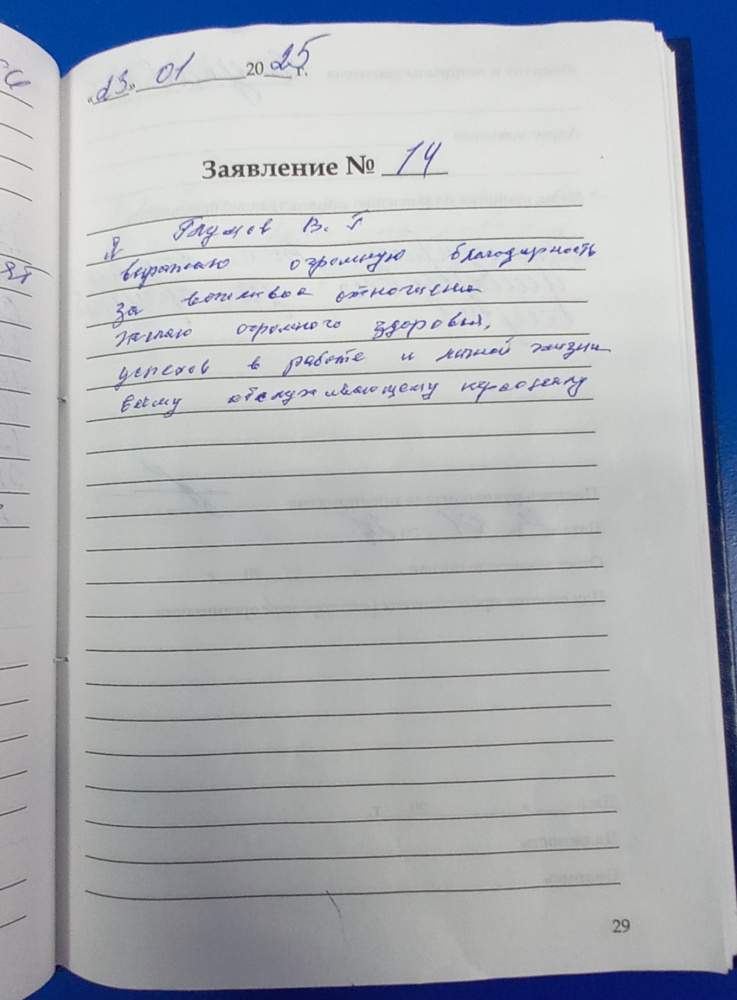 «23» 01 2025 г.
Заявление № 14
Я Глумов В. Г
выражаю огромную благодарность
за вежливое отношение
желаю огромного здоровья,
успехов в работе и личной жизни
всему обслуживающему персоналу
29